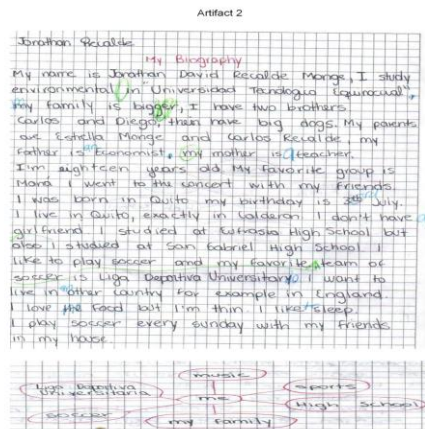 Artifact 2
Jonathan Recalde
My Biography
My name is Jonathan David Recalde Monge, I study
environmental in "Universidad Tecnologica Equinocial",
my family is bigger, I have two brothers
Carlos and Diego, then have big dogs. My parents
are Estella Monge and Carlos Recalde, my
father is an Economist, my mother is a teacher.
I'm eighteen years old. My favorite group is
Maná I went to the concert with my friends.
I was born in Quito my birthday is July.
I live in Quito, exactly in Calderon I don't have a
girlfriend I studied at High School but
also I studied at San Gabriel High School I
like to play soccer and my favorite team of
soccer is Liga Deportiva Universitary I want to
live in other country for example in England.
I love the food but I'm thin. I like to sleep.
I play soccer every sunday with my friends
in my house.
music
Liga Deportiva
Universitaria
me
sports
High School
soccer
my family